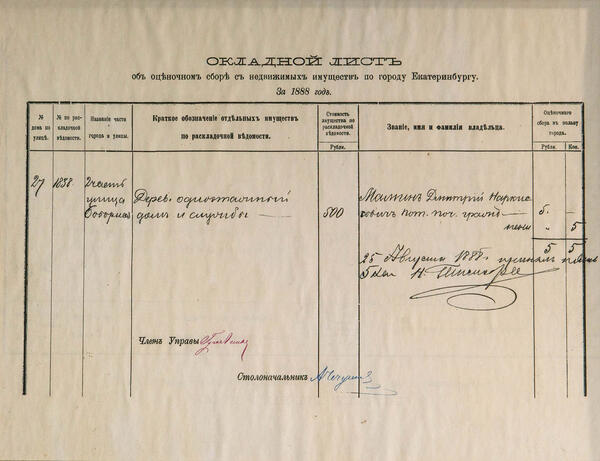 ОКЛАДНОЙ ЛИСТЪ
объ оцѣночномъ сборѣ съ недвижимыхъ имуществъ по городу Екатеринбургу.
За 1888 годъ.
№ дома по улицѣ.
№ по рас-
кладочной
вѣдомости.
Названіе части
города и улицы.
Краткое обозначеніе отдѣльныхъ имуществъ
по раскладочной вѣдомости.
Стоимость
имущества по
раскладочной
вѣдомости.
Рубли.
Званіе, имя и фамилія владѣльца.
Оцѣночнаго
сбора въ пользу
города.
Рубли. Коп.
27 1838. 2 часть Дерев. одноэтажный 500 Маминъ Дмитрій Наркис
улица домъ и службы совичъ пот. поч. гражд 5. -
" 5
5 5
25 Августа 1888
Членъ Управы
Столоначальникъ